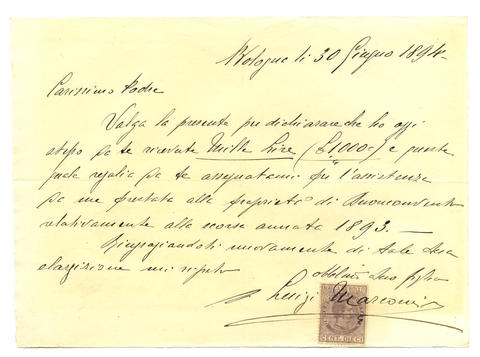 Bologna li 30 Giugno 1894
Carissimo Padre
Valga la presente per dichiarare che ho oggi
stesso da te ricevute Mille Lire (£1000) e queste
quale regalia da te assegnatami per l'assistenza
da me prestata alla proprietà di Buonconvento
relativamente alla scorsa annata 1893.—
Ringraziandoti nuovamente di tale tua
elargizione mi ripeto
obblmo tuo figlio
Luigi Marconi
CENT. DIECI